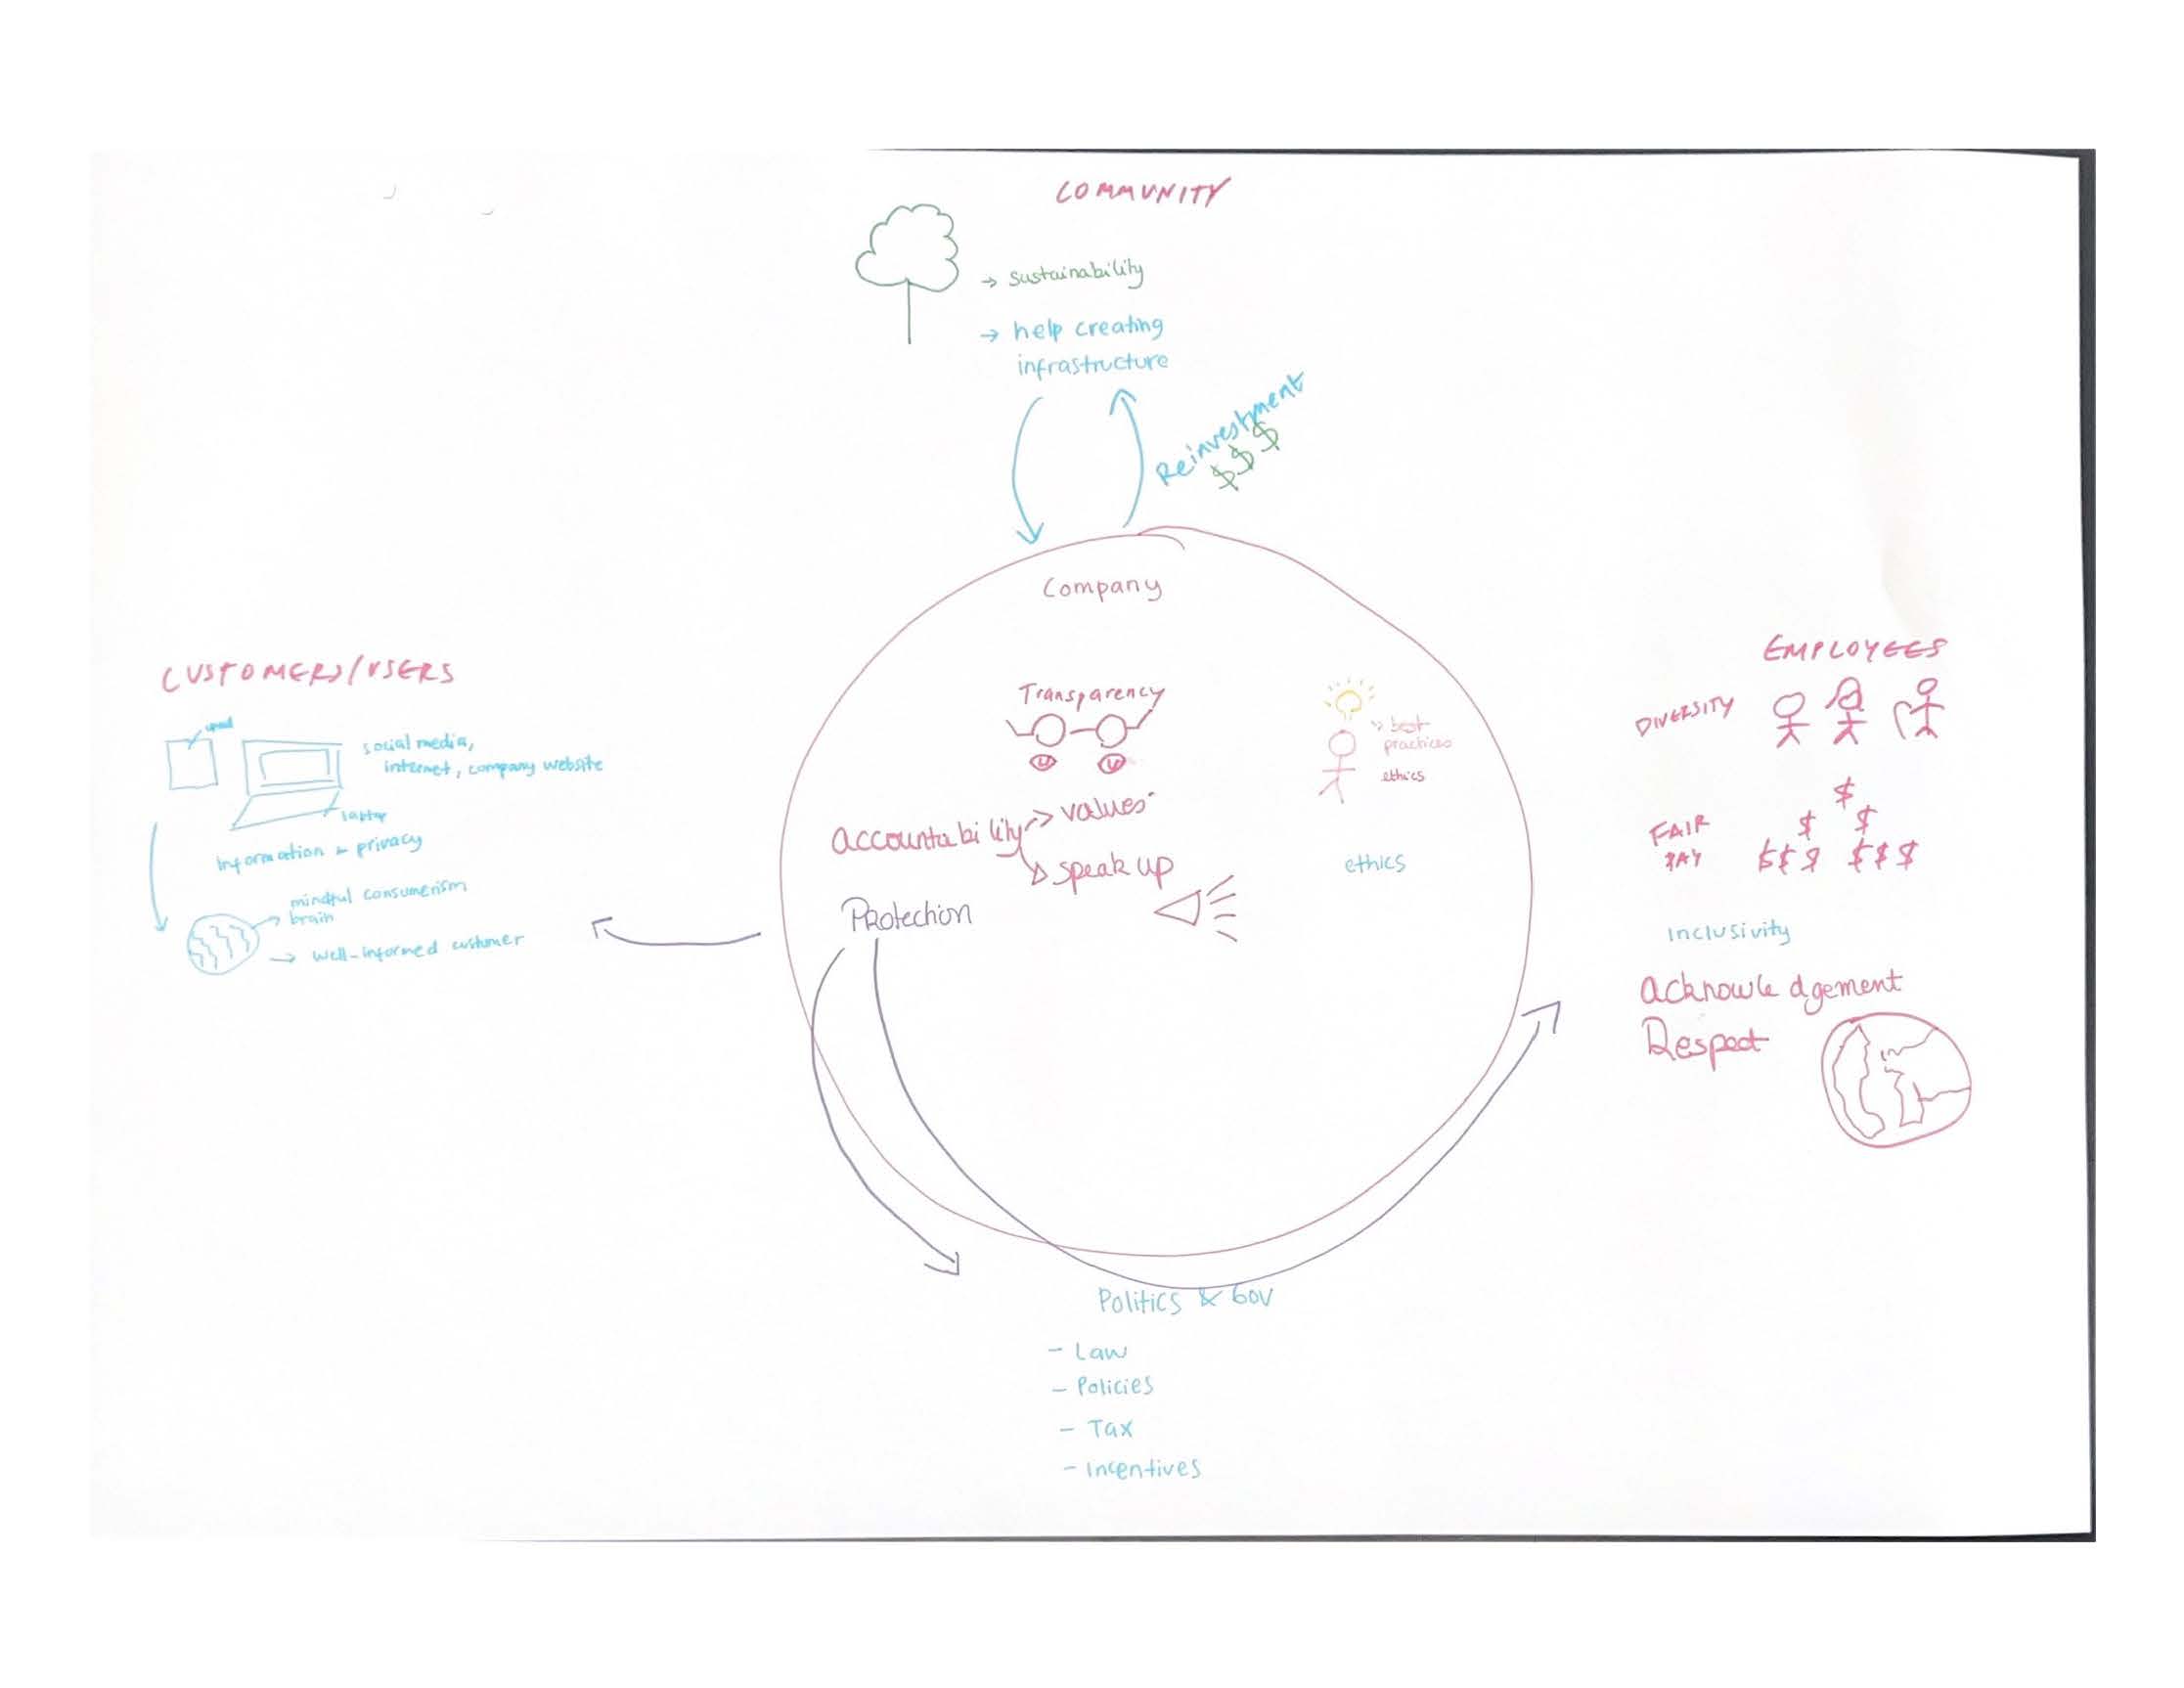 COMMUNITY
→ sustainability
→ help creating
infrastructure
Reinvestment
$$$
Company
Transparency
best
practices
ethics
Accountability → values
→ speak up
ethics
Protection
CUSTOMERS/USERS
ipad
social media,
internet, company website
laptop
Information & privacy
mindful consumerism
brain
→ well-informed customer
EMPLOYEES
DIVERSITY
$
$ $
FAIR
PAY
$$$ $$$
Inclusivity
Acknowledgement
Respect
Politics & Gov
- Law
- Policies
- Tax
- Incentives